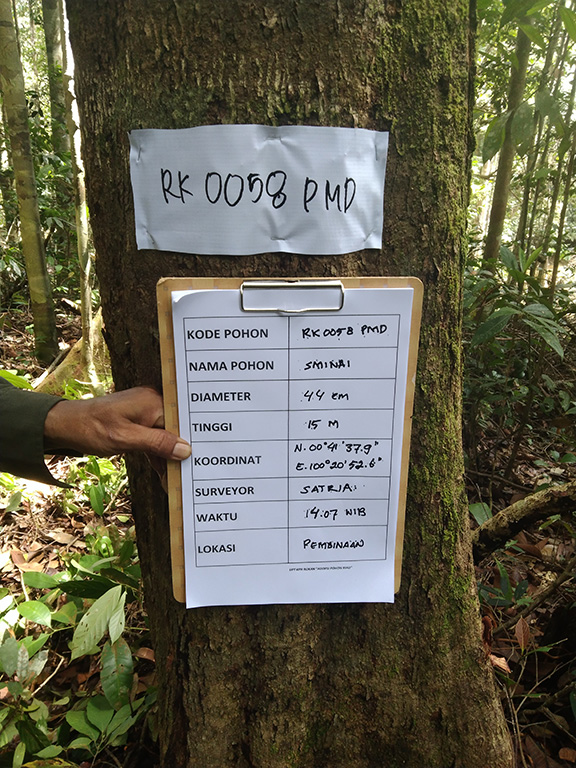 RK 0058 PMD
KODE POHON RK 0058 PMD
NAMA POHON SMINAI
DIAMETER 44 cm
TINGGI 15 M
KOORDINAT N. 00° 41' 37.9"
E. 100° 20' 52.6"
SURVEYOR SATRIA
WAKTU 14.07 WIB
LOKASI PEMBINAAN